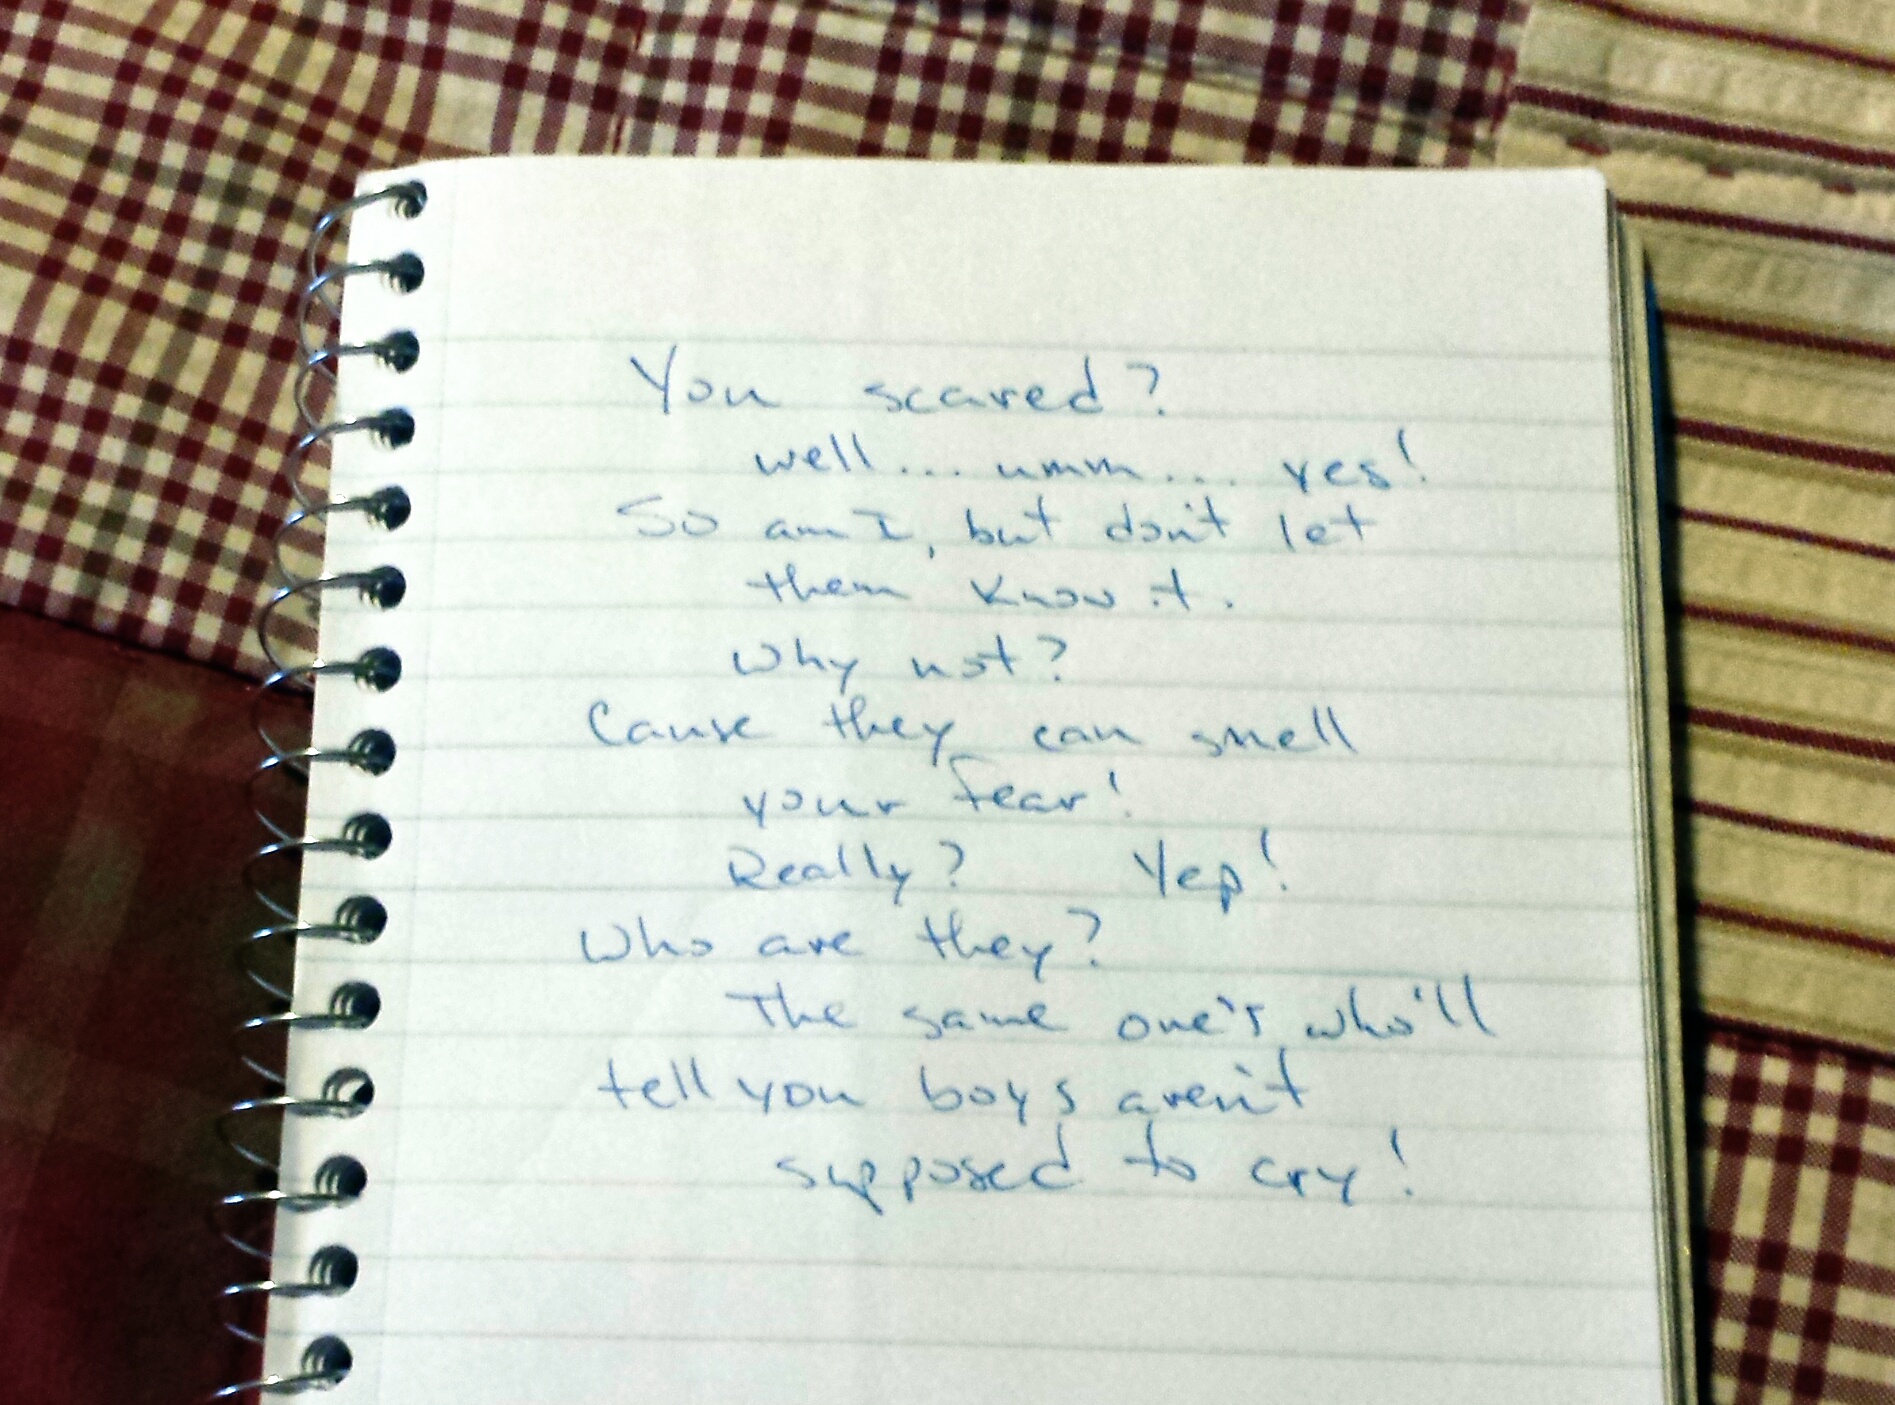 You scared?
well... umm.... yes!
So am I, but don't let
them know it.
Why not?
Cause they can smell
your fear!
Really? Yep!
Who are they?
The same one's who'll
tell you boys aren't
supposed to cry!